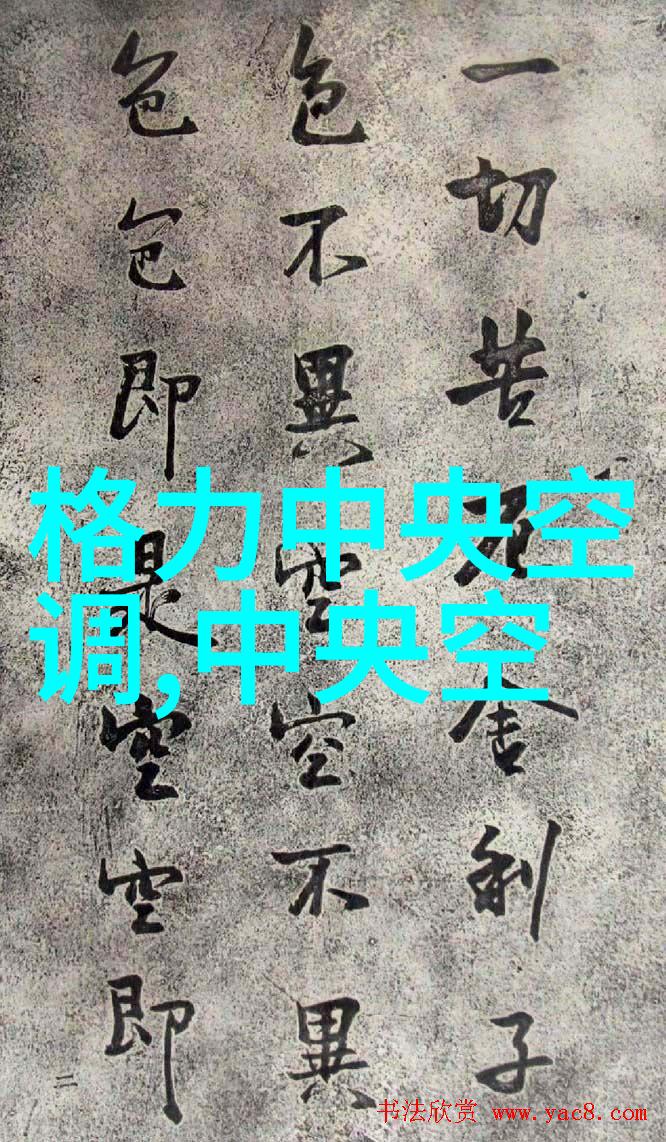 一切苦厄舍利子
色不異空空不異
色色即是空空即
二
格力中央空
调,中央空
书法欣赏 www.yac8.com